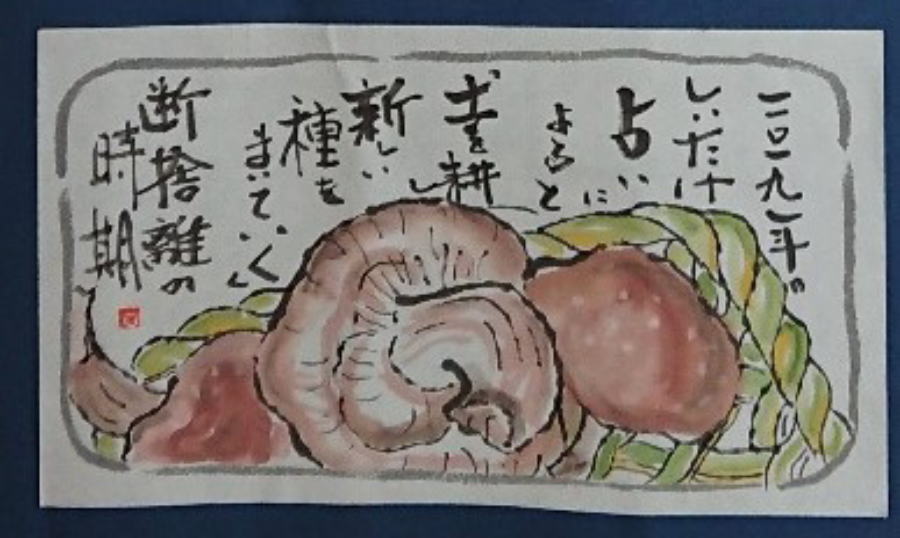 二〇一九年の
しいたけ
占いに
よると
土を耕し
新しい
種を
まいていく
断捨離の
時期